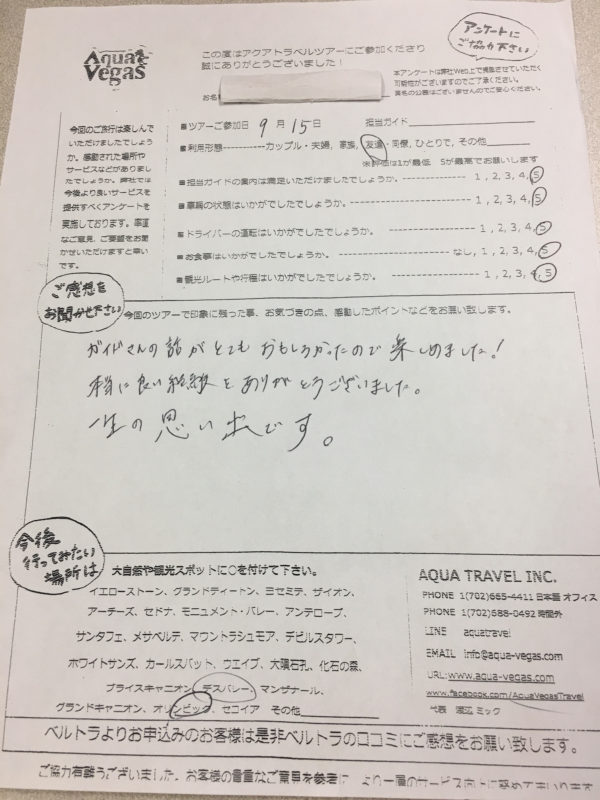 アンケートに
ご協力下さい
Aqua
Vegas
この度はアクアトラベルツアーにご参加くださり
誠にありがとうございました！
本アンケートは弊社Web上で掲載させていただく
可能性がございますのでご了承ください。
実名の公開はございませんのでご安心ください。
お名
■ツアーご参加日 9 月 15 日 担当ガイド
■利用形態-----------カップル・夫婦, 家族, 友達・同僚, ひとりで, その他
※評価は1が最低 5が最高でお願いします
■担当ガイドの案内は満足いただけましたでしょうか。 1, 2, 3, 4, 5
■車輌の状態はいかがでしたでしょうか。 1, 2, 3, 4, 5
■ドライバーの運転はいかがでしたでしょうか。 1, 2, 3, 4, 5
■お食事はいかがでしたでしょうか。 なし, 1, 2, 3, 4, 5
■観光ルートや行程はいかがでしたでしょうか。 1, 2, 3, 4, 5
今回のご旅行は楽しんで
いただけましたでしょう
か。感動された場所や
サービスなどがありまし
たでしょうか。弊社では
今後より良いサービスを
提供すべくアンケートを
実施しております。率直
なご意見、ご要望をお聞
かせいただけますと幸い
です。
ご感想を
お聞かせ下さい
今回のツアーで印象に残った事、お気づきの点、感動したポイントなどをお願い致します。
ガイドさんの話がとてもおもしろかったので楽しめました!
本当に良い経験をありがとうございました。
一生の思い出です。
今後
行ってみたい
場所は
大自然や観光スポットに○を付けて下さい。
イエローストーン、グランドティートン、ヨセミテ、ザイオン、
アーチーズ、セドナ、モニュメント・バレー、アンテロープ、
サンタフェ、メサベルデ、マウントラシュモア、デビルスタワー、
ホワイトサンズ、カールスバット、ウエイブ、大隕石孔、化石の森、
ブライスキャニオン、デスバレー、マンザナール、
グランドキャニオン、オリンピック、セコイア その他
AQUA TRAVEL INC.
PHONE 1(702)665-4411 日本語 オフィス
PHONE 1(702)688-0492 時間外
LINE aquatravel
EMAIL info@aqua-vegas.com
URL: www.aqua-vegas.com
www.facebook.com/AquaVegasTravel
代表 渡辺 ミック
ベルトラよりお申込みのお客様は是非ベルトラの口コミにご感想をお願い致します。
ご協力有難うございました。お客様の貴重なご意見を参考に、より一層のサービス向上に努めてまいります